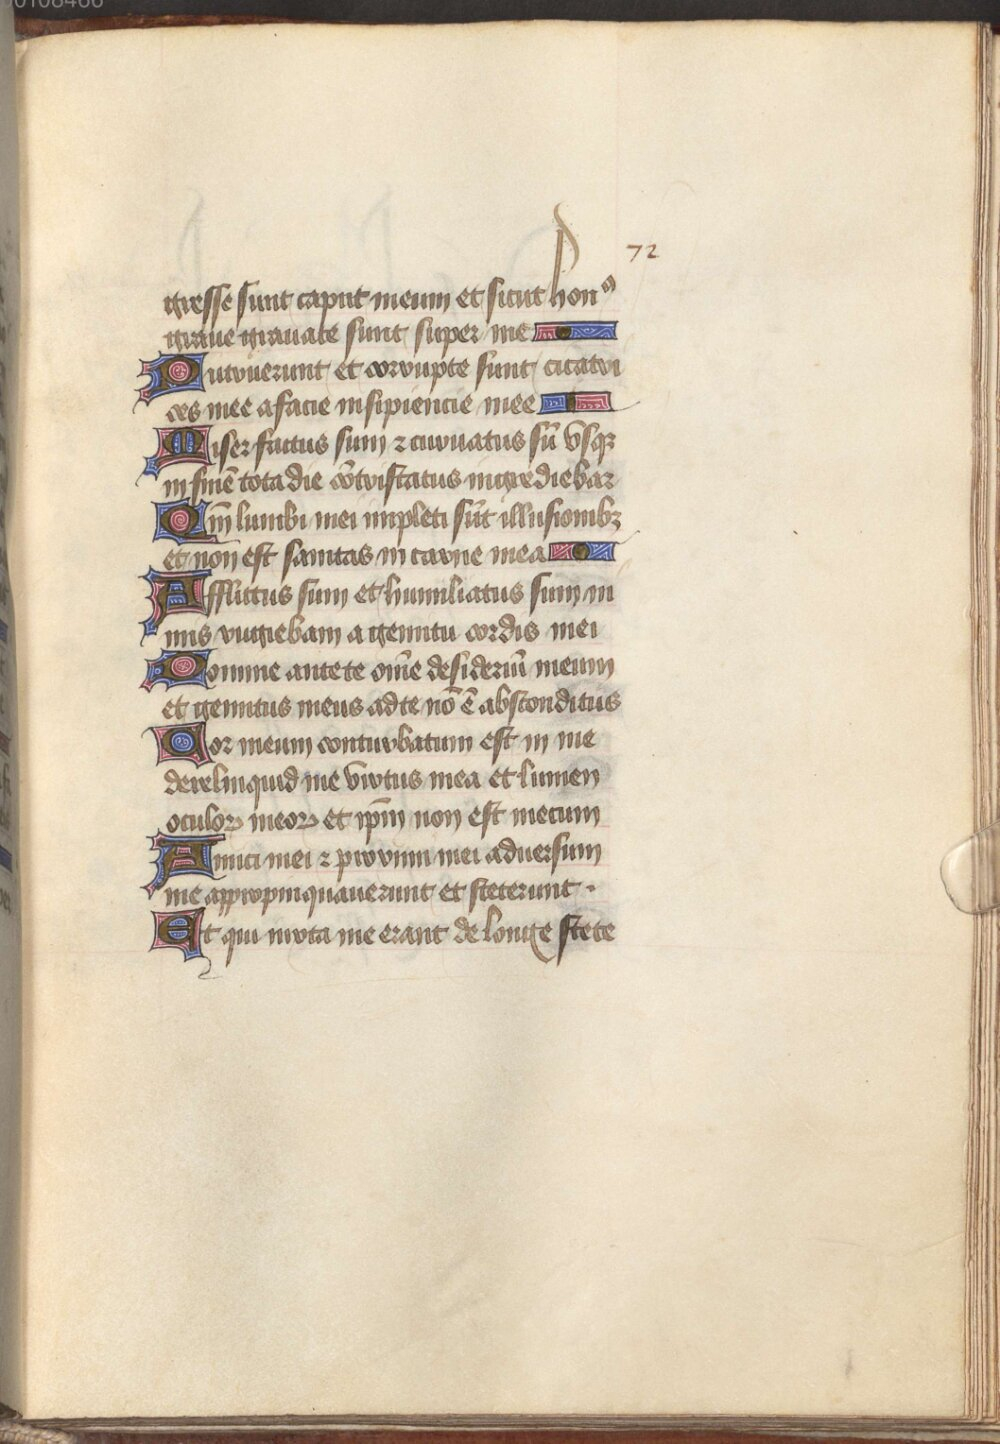 00108466
72
gresse sunt caput meum et sicut honꝰ
graue grauate sunt super me
Putruerunt et corrupte sunt cicatri
ces mee a facie insipiencie mee
Miser factus sum ⁊ curuatus sū vsqꝫ
in finē tota die cōtristatus ingrediebar
Qm̄ lumbi mei impleti sūt illusionibꝫ
et non est sanitas in carne mea
Afflictus sum et humiliatus sum ni
mis rugiebam a gemitu cordis mei
Domine ante te om̄e desideriū meum
et gemitus meus ad te nō ē absconditus
Cor meum conturbatum est in me
derelinquid me virtus mea et lumen
oculoꝝ meoꝝ et ip̄m non est mecum
Amici mei ⁊ proximi mei aduersum
me appropinquauerunt et steterunt ·
Et qui iuxta me erant de longe stete